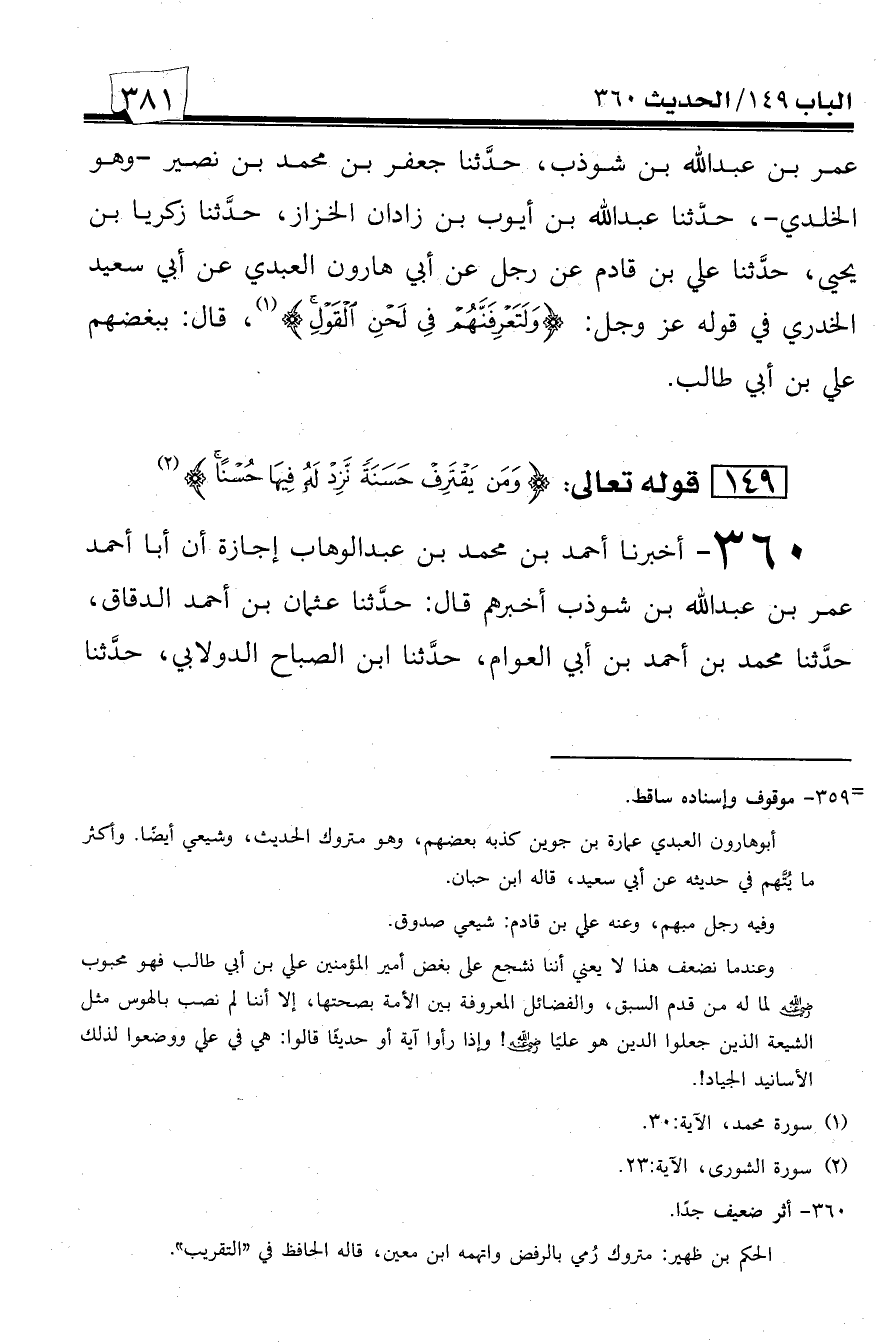 الباب ١٤٩/الحديث ٣٦٠
٣٨١
عمر بن عبدالله بن شوذب، حدَّثنا جعفر بن محمد بن نصير -وهو
الخلدي-، حدَّثنا عبدالله بن أيوب بن زادان الخزاز، حدَّثنا زكريا بن
يحيى، حدَّثنا علي بن قادم عن رجل عن أبي هارون العبدي عن أبي سعيد
الخدري في قوله عز وجل: ﴿وَلَتَعْرِفَنَّهُمْ فِي لَحْنِ ٱلْقَوْلِۚ﴾(١)، قال: ببغضهم
علي بن أبي طالب.
١٤٩ قوله تعالى: ﴿وَمَن يَقْتَرِفْ حَسَنَةً نَّزِدْ لَهُۥ فِيهَا حُسْنًاۚ﴾(٢)
٣٦٠- أخبرنا أحمد بن محمد بن عبدالوهاب إجازة أن أبا أحمد
عمر بن عبدالله بن شوذب أخبرهم قال: حدَّثنا عثمان بن أحمد الدقاق،
حدَّثنا محمد بن أحمد بن أبي العوام، حدَّثنا ابن الصباح الدولابي، حدَّثنا
=٣٥٩- موقوف وإسناده ساقط.
أبوهارون العبدي عمارة بن جوين كذبه بعضهم، وهو متروك الحديث، وشيعي أيضًا. وأكثر
ما يُتَّهم في حديثه عن أبي سعيد، قاله ابن حبان.
وفيه رجل مبهم، وعنه علي بن قادم: شيعي صدوق.
وعندما نضعف هذا لا يعني أننا نشجع على بغض أمير المؤمنين علي بن أبي طالب فهو محبوب
رضي الله عنه لما له من قدم السبق، والفضائل المعروفة بين الأمة بصحتها، إلا أننا لم نصب بالهوس مثل
الشيعة الذين جعلوا الدين هو عليًا رضي الله عنه! وإذا رأوا آية أو حديثًا قالوا: هي في علي ووضعوا لذلك
الأسانيد الجياد!.
(١) سورة محمد، الآية:٣٠.
(٢) سورة الشورى، الآية:٢٣.
٣٦٠- أثر ضعيف جدًا.
الحكم بن ظهير: متروك رُمي بالرفض واتهمه ابن معين، قاله الحافظ في «التقريب».